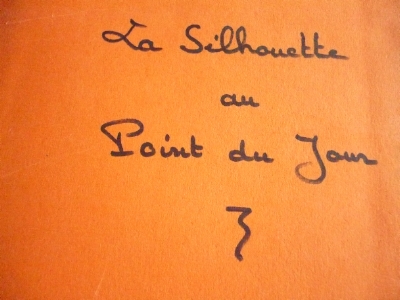 La Silhouette
au
Point du Jour
3